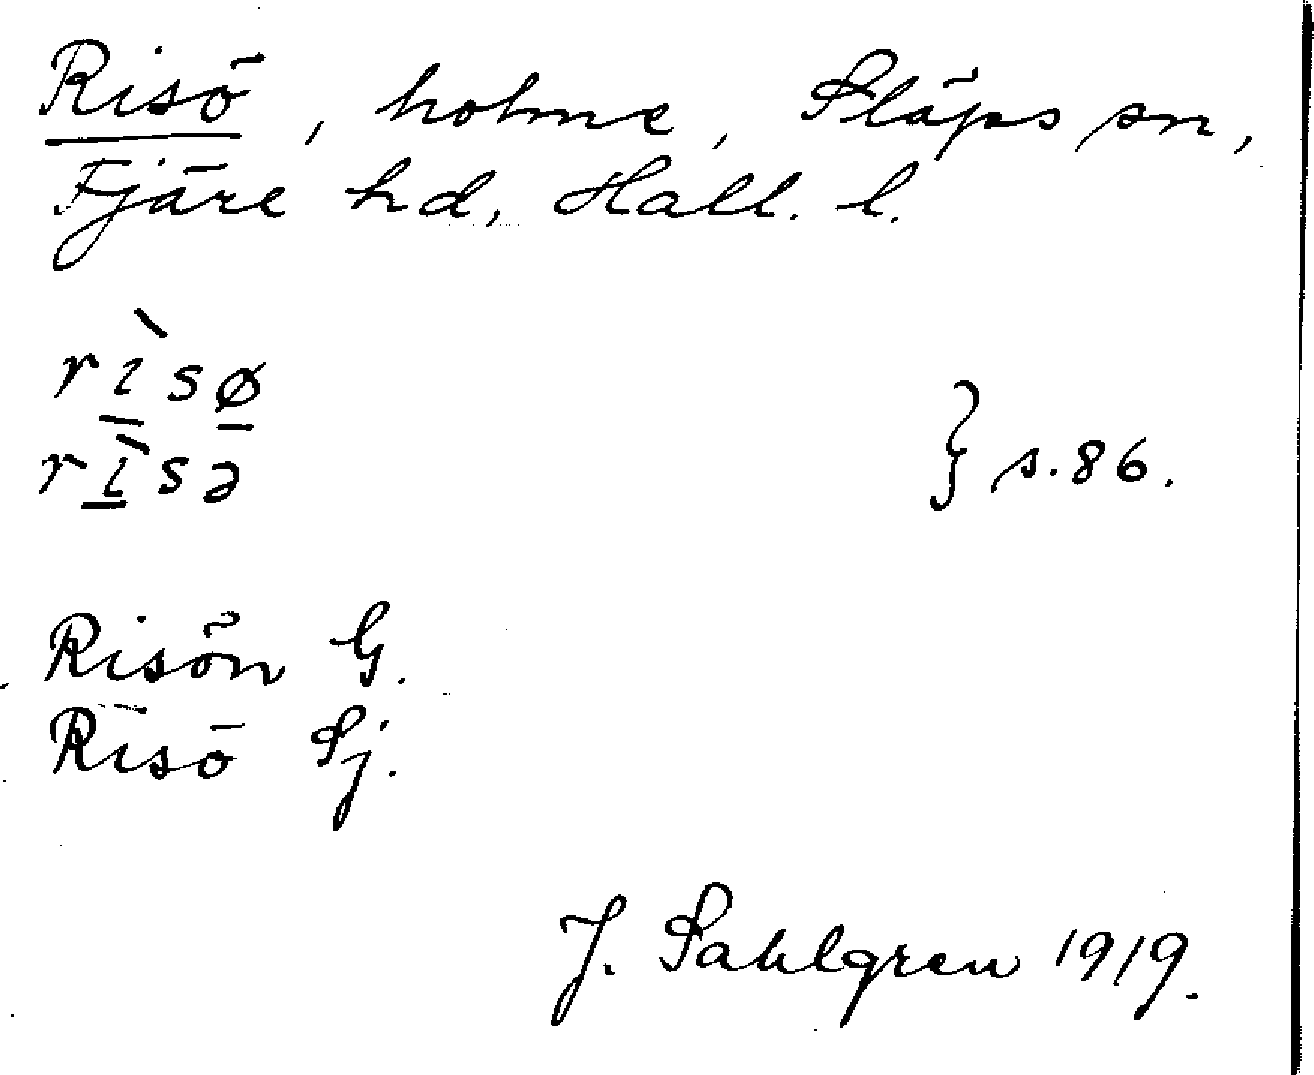 Risö, holme, Släps sn,
Fjäre hd, Hall. l.
rı̲̀sø̲
rı̲̀sə } s. 86.
Risön G.
Risö Sj.
J. Sahlgren 1919.